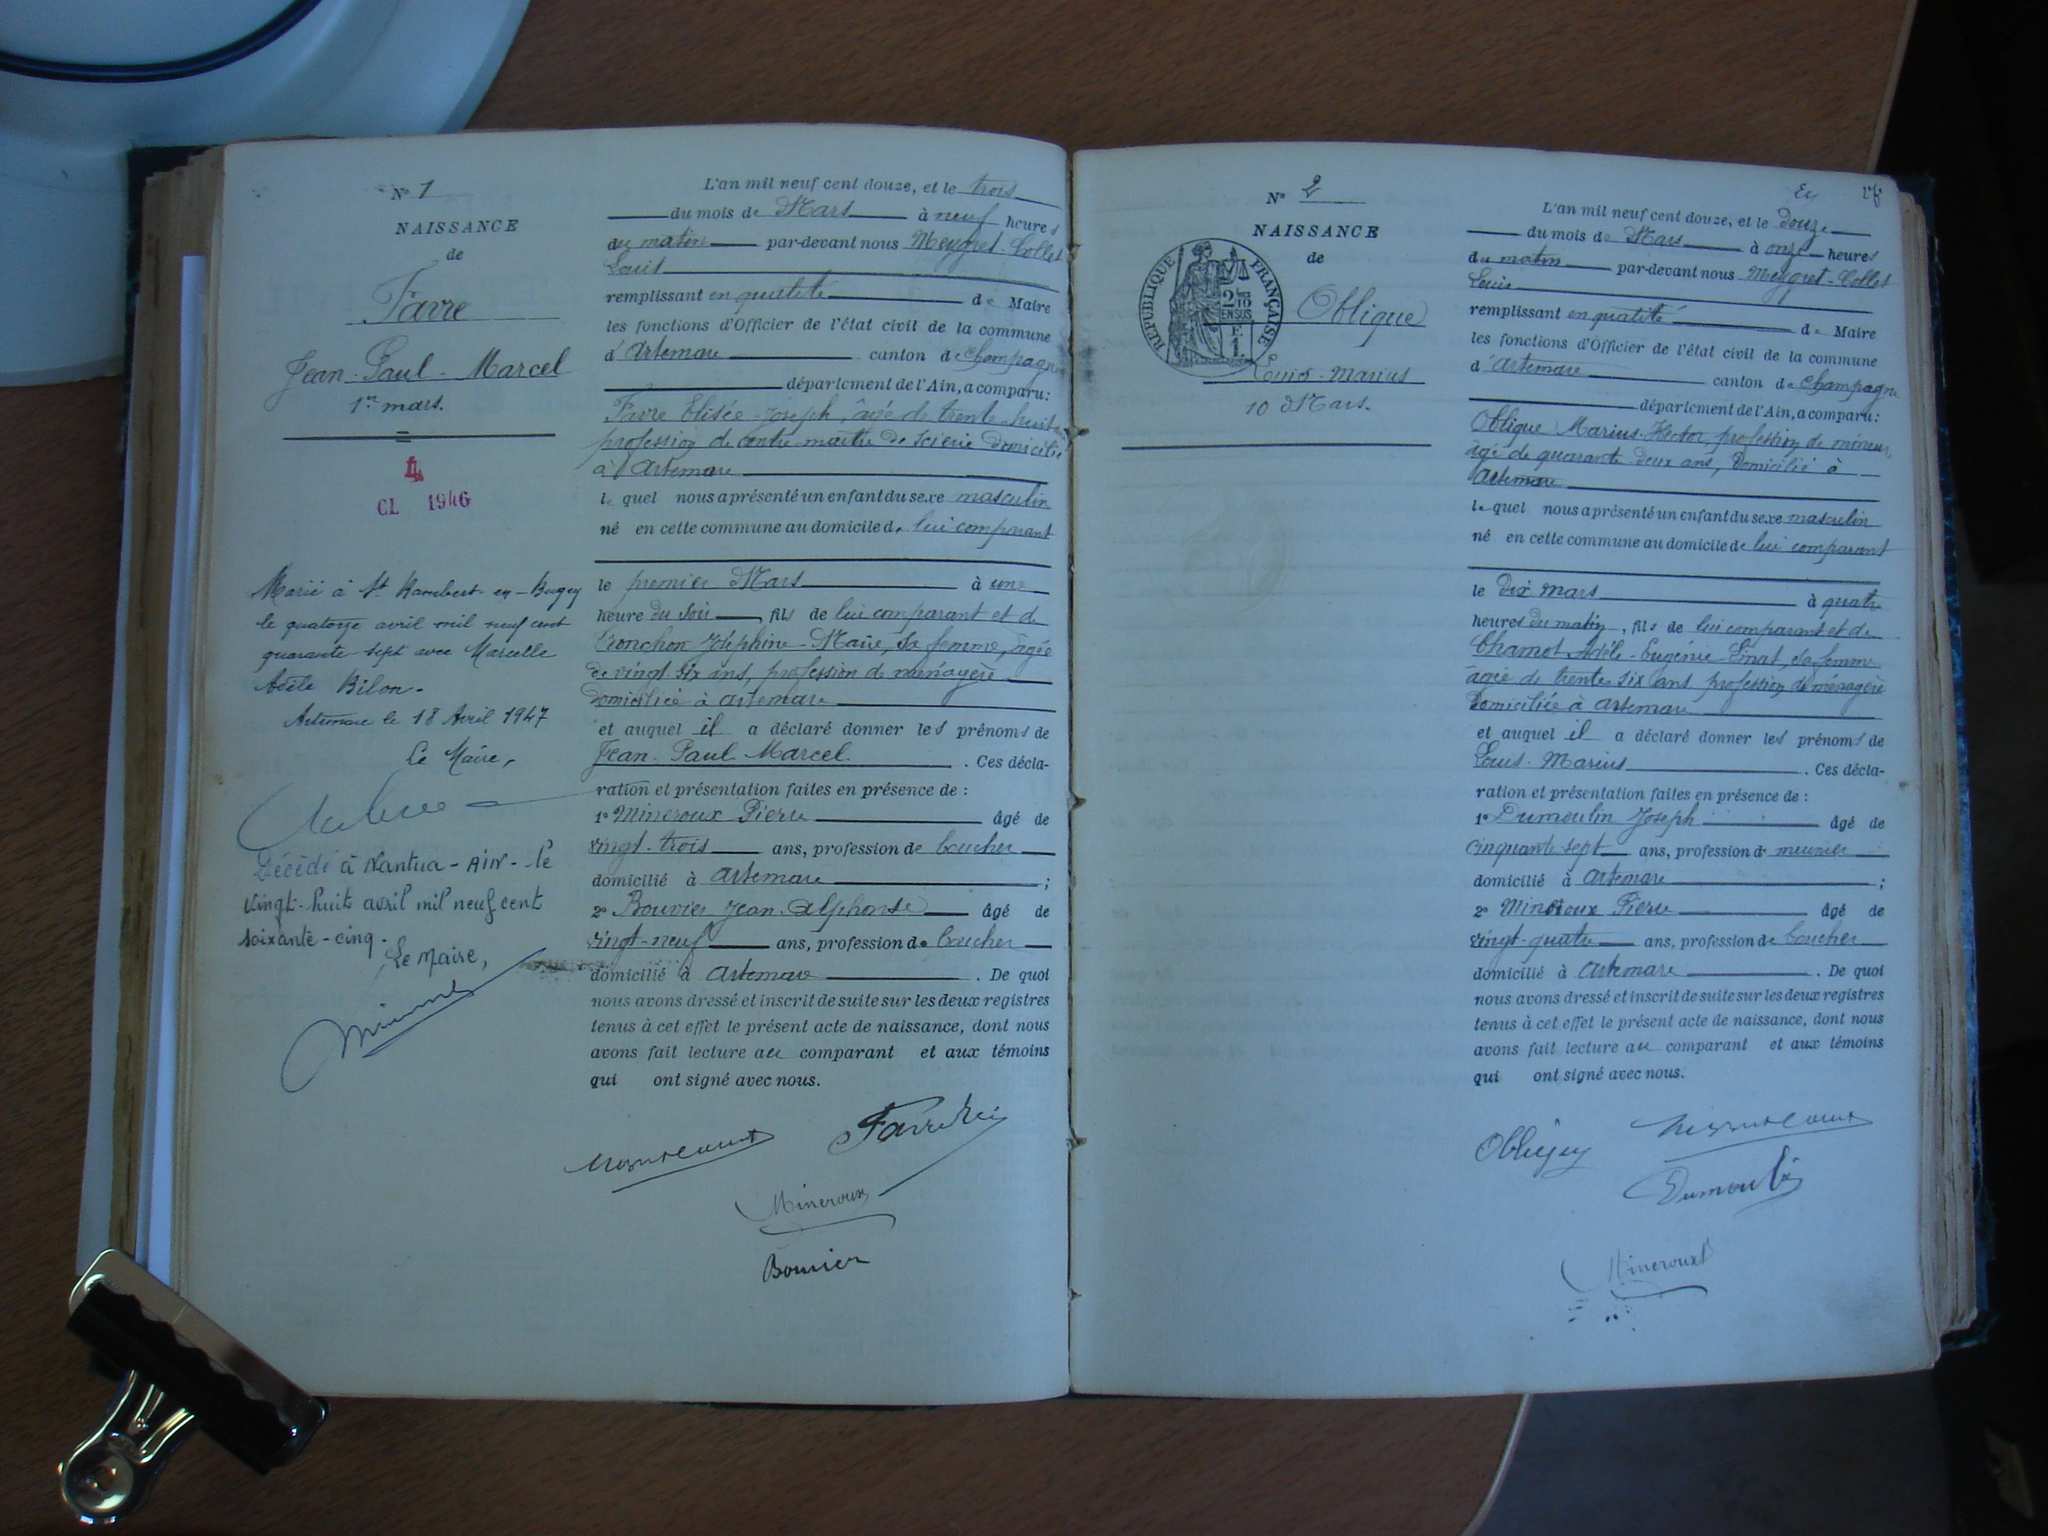 N° 1
NAISSANCE
de
Favre
Jean-Paul-Marcel
1er mars.
CL 1946
Marié à St Rambert-en-Bugey
le quatorze avril mil neuf cent
quarante-sept avec Marcelle
Adèle Bilon-
Artemare le 18 Avril 1947
Le Maire,
Décédé à Nantua-AIN-le
vingt-huit avril mil neuf cent
soixante-cinq.
Le Maire,
L'an mil neuf cent douze, et le trois
du mois de Mars à neuf heures
du matin par-devant nous Meygret-Collet
Louis
remplissant en qualité de Maire
les fonctions d'Officier de l'état civil de la commune
d'Artemare canton de Champagne
département de l'Ain, a comparu:
Favre Elisée-Joseph, âgé de trente-huit
profession de contre-maitre de scierie domicilié
à Artemare
le quel nous a présenté un enfant du sexe masculin
né en cette commune au domicile de lui comparant
le premier Mars à une
heure du soir, fils de lui comparant et de
Josephine-Marie, sa femme, âgée
de vingt six ans, profession de ménagère
domiciliée à Artemare
et auquel il a déclaré donner les prénoms de
Jean-Paul-Marcel. Ces décla-
ration et présentation faites en présence de :
1° Mineroux Pierre âgé de
vingt-trois ans, profession de boucher
domicilié à Artemare ;
2° Bouvier Jean-Alphonse âgé de
vingt-neuf ans, profession de boucher
domicilié à Artemare. De quoi
nous avons dressé et inscrit de suite sur les deux registres
tenus à cet effet le présent acte de naissance, dont nous
avons fait lecture au comparant et aux témoins
qui ont signé avec nous.
Mineroux
Bouvier
N° 2
NAISSANCE
de
RÉPUBLIQUE FRANÇAISE
Oblique
Louis-Marius
10 Mars.
L'an mil neuf cent douze, et le douze
du mois de Mars à onze heures
du matin par-devant nous Meygret-Collet
Louis
remplissant en qualité de Maire
les fonctions d'Officier de l'état civil de la commune
d'Artemare canton de Champagne
département de l'Ain, a comparu:
Oblique Marius-Hector, profession de mineur
âgé de quarante-deux ans, domicilié à
Artemare
le quel nous a présenté un enfant du sexe masculin
né en cette commune au domicile de lui comparant
le dix mars à quatre
heures du matin, fils de lui comparant et de
Chamot Adèle-Eugénie sa femme
âgée de trente six ans profession de ménagère
domiciliée à Artemare
et auquel il a déclaré donner les prénoms de
Louis-Marius. Ces décla-
ration et présentation faites en présence de :
1° Dumoulin Joseph âgé de
cinquante sept ans, profession de meunier
domicilié à Artemare ;
2° Mineroux Pierre âgé de
vingt-quatre ans, profession de boucher
domicilié à Artemare. De quoi
nous avons dressé et inscrit de suite sur les deux registres
tenus à cet effet le présent acte de naissance, dont nous
avons fait lecture au comparant et aux témoins
qui ont signé avec nous.
Dumoulin
Mineroux